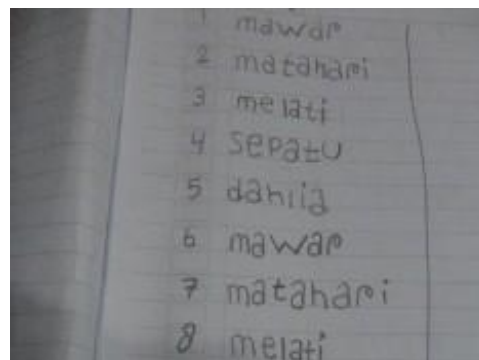 1 mawar
2 matahari
3 melati
4 sepatu
5 dahlia
6 mawar
7 matahari
8 melati